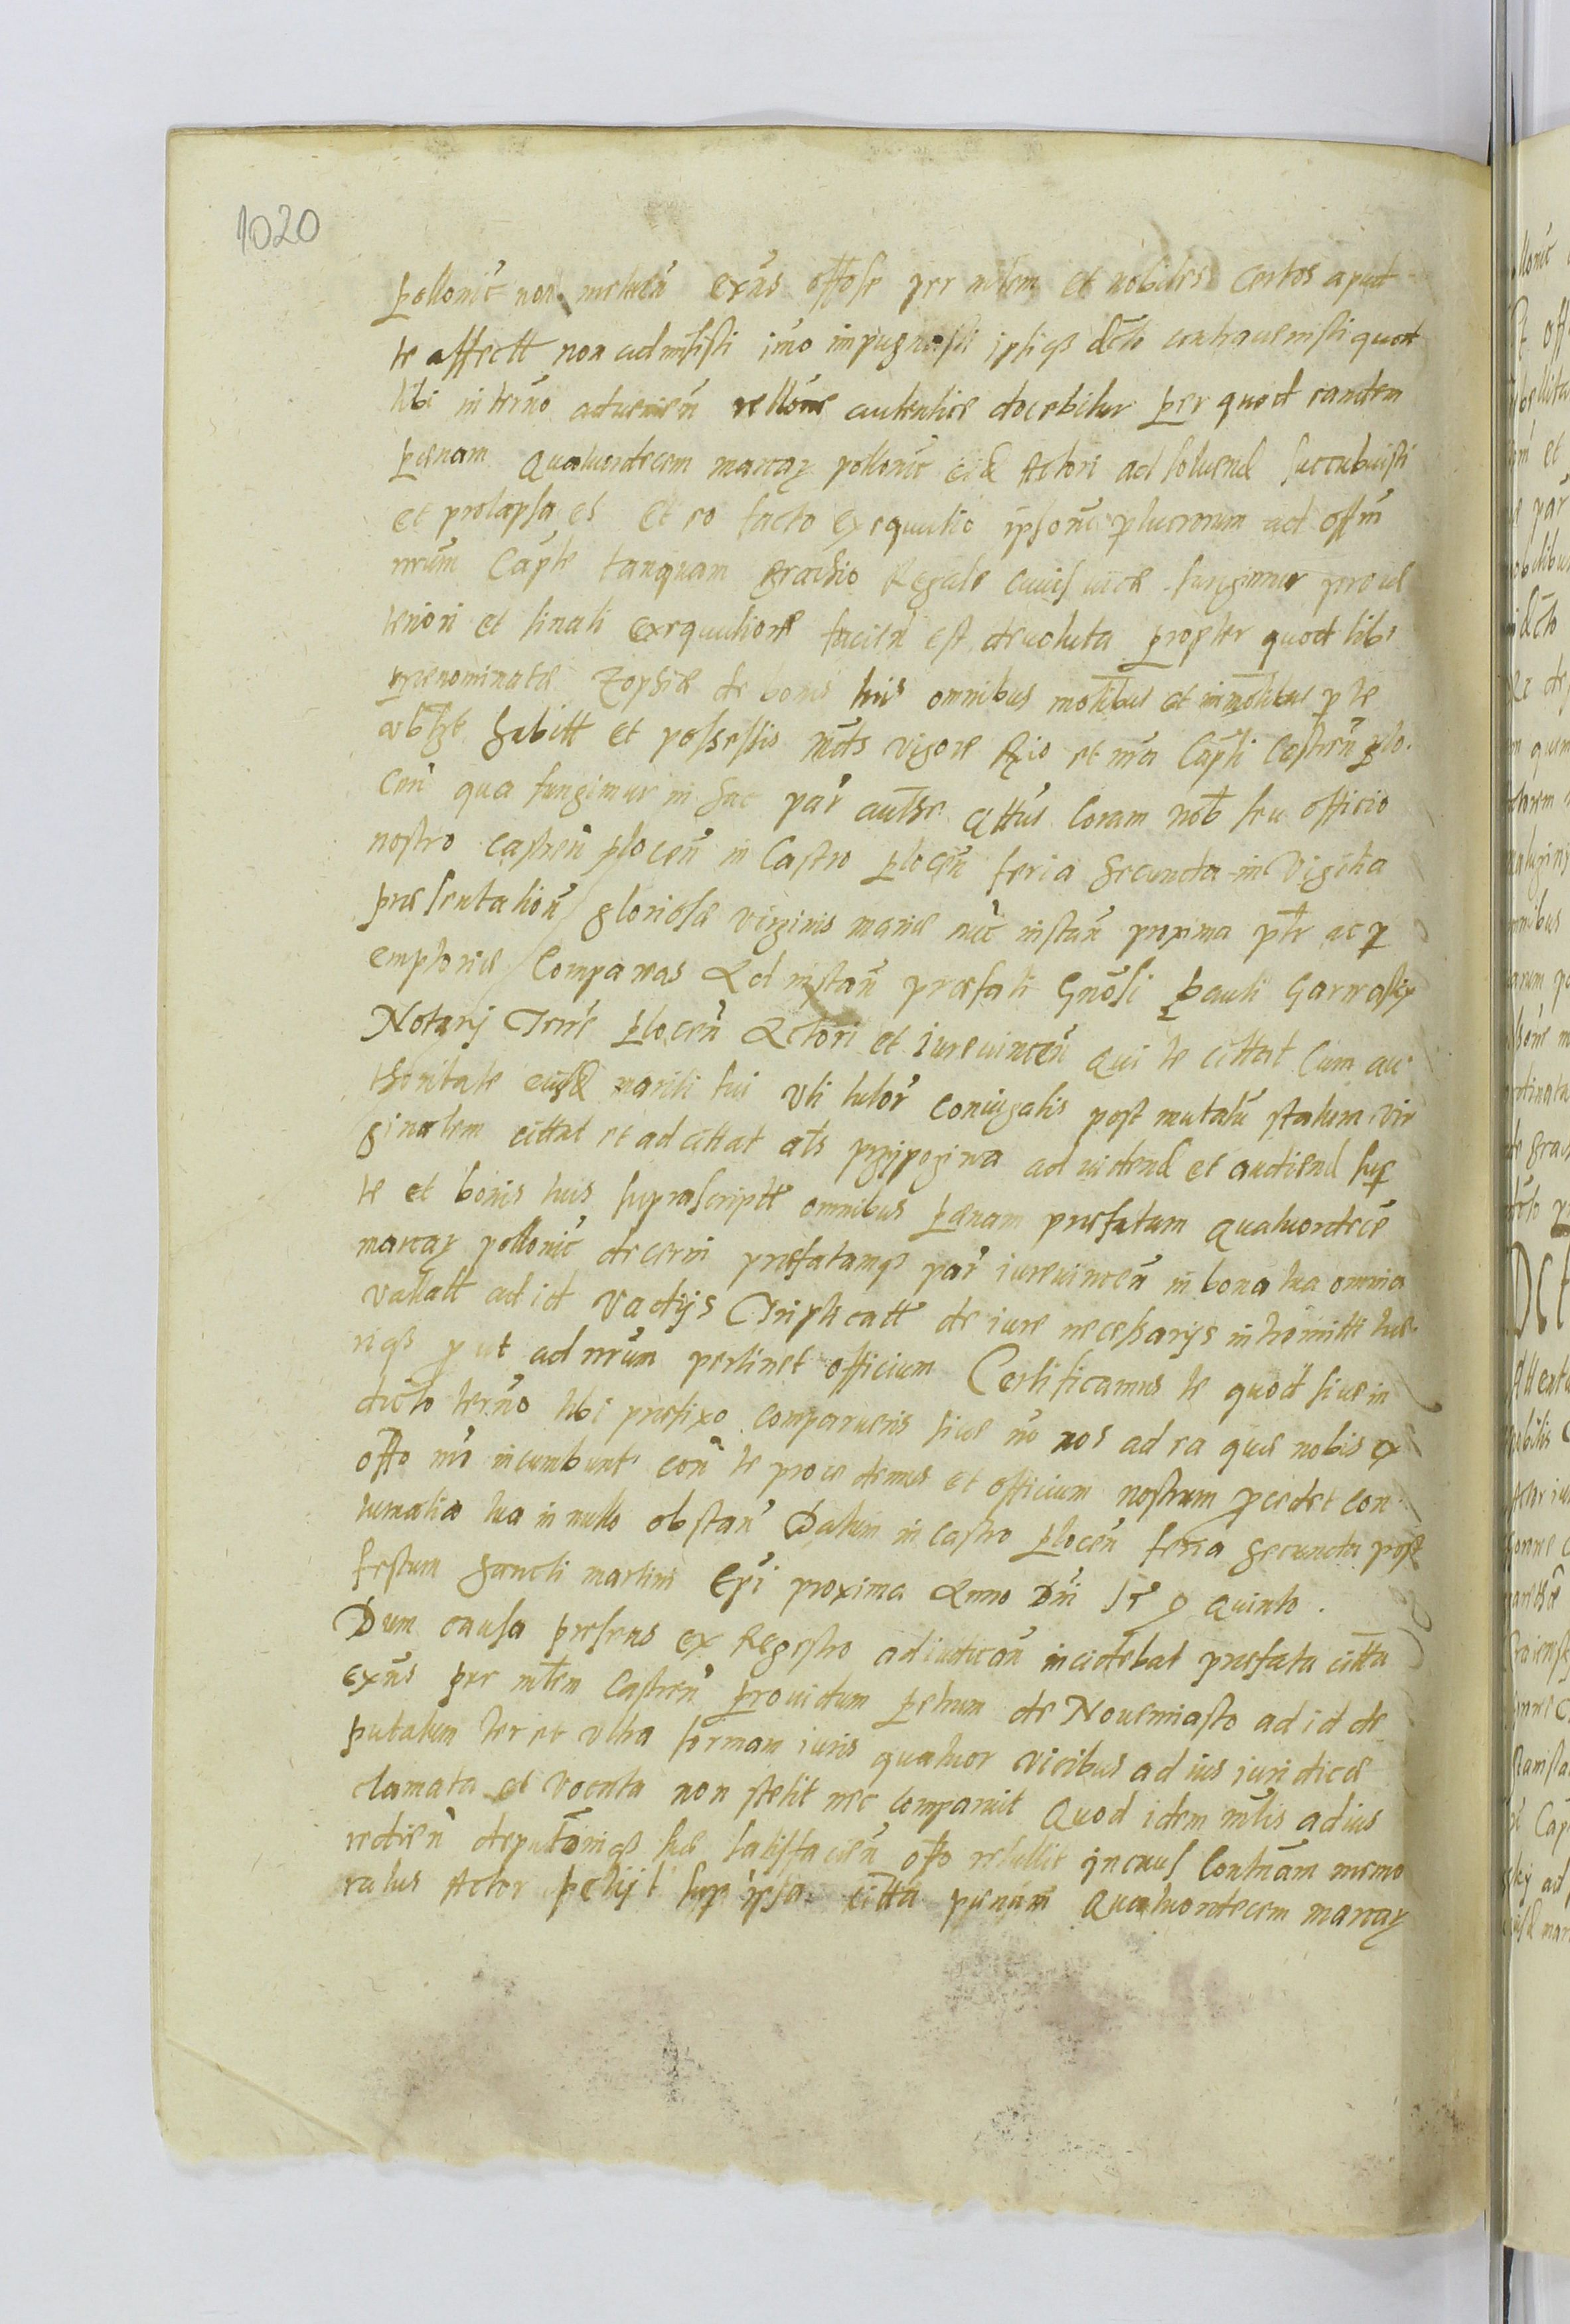 1020
pollonic̄ non metuen̄ exn̄s offose per mlem et nobiles certos aput
te affectt non admisisti imo impugnasti ipsiq3 dcto contravenisti quot
tibi in term̄o advenien̄ rellōne autentice docebitur per quod eandem
pœnam Quatuordecem marcar pollonic̄ eid Actori ad solvend succubuisti
et prolapsa es Et eo facto exequutio ipsorum plucrorum ad offm̄
nrūm Capt̄le tanquam brachio Regale cuius vice fungimur pro ul
teriori et finali exequutione facien̄ est devoluta propter quod tibi
prænominatæ Zophiæ de bonis tuis omnibus mobibus et immobibus p te
vbt habitt et possessis mdts vigore Rio et nr̄a Capt̄li Castren̄ plo.
cen̄ qua fungimur in hac par̄ authe Attus Coram nob̄ seu officio
nostro castren̄ plocen̄ in Castro plocen̄ feria Secunda in Vigilia
præsentation̄ gloriosæ virginis mariæ nūc instan̄ proxima ptr̄ ac p
emptoriæ Compareas Ad instan̄ præfati Gnōsi pauli
Notarij Terræ plocen̄ Actori et iurevincen̄ qui te cittat Cum au
thoritate eiusd mariti tui vti tutor̄ coniugalis post mutatū statum vir
ginalem cittat et adcittat als ad vidend et audiend sup
te et bonis tuis suprascriptt omnibus pænam præfatam Quatuordecē
marcar pollonic̄ decerni præfatamq3 par̄ iurevincen̄ in bona tua omnia
vallatt ad id vadijs Triplicatt de iure necessarijs intromitti tue
riq3 p ut ad nrūm pertinet officium Certificamus te quod sive in
dicto term̄o tibi præfixo comparueris sive nō nos ad ea quæ nobis ex
offo nr̄o incumbunt con̄ te procedemus et officium nostrum pcedet con
tumatia tua in nullo obstan̄ Datum in castro plocen̄ feria Secunda post
festum Sancti martini Epī proxima Anno Dn̄i quinto.
Dum causa præsens ex Regestro adiudican̄ incidebat præfata citta
exn̄s per mlem Castren̄ providum petrum de Novemiasto ad id de
putatum ter et vltra formam iuris quatuor vicibus ad ius iuridicæ
clamata et vocata non stetit nec comparuit Quod idem mlis ad ius
redien̄ deputōniq3 suæ satisfacien̄ offo retullit in cuius Contum̄am memo
ratus Actor petijt sup ipsa citta pænam Quatuordecem marcar